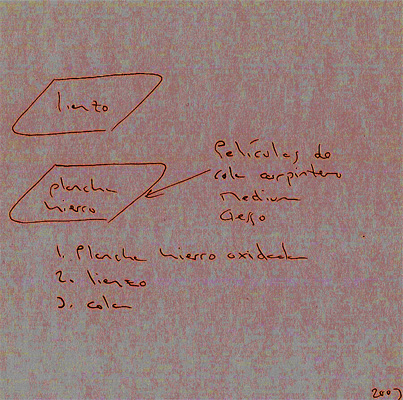 lienzo
plancha
hierro
Películas de
cola carpintero
medium
Gesso
1. Plancha hierro oxidada
2. lienzo
3. cola
2003